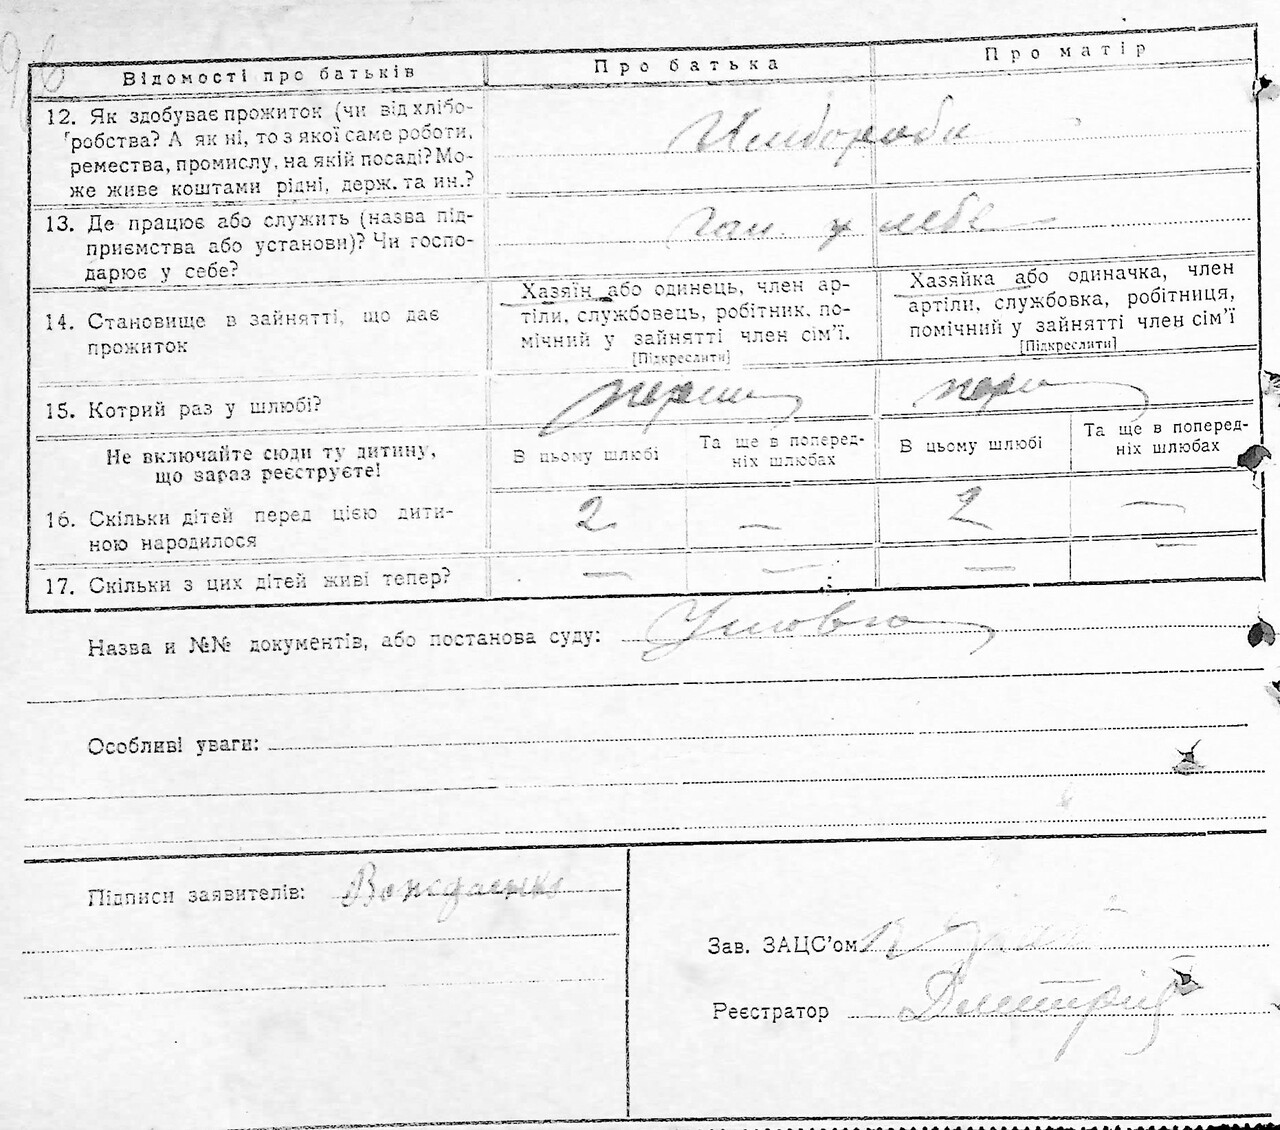 Відомості про батьків
Про батька
Про матір
12. Як здобуває прожиток (чи від хлібо-
робства? А як ні, то з якої саме роботи,
ремества, промислу, на якій посаді? Мо-
же живе коштами рідні, держ. та ин.?
13. Де працює або служить (назва під-
приємства або установи)? Чи госпо-
дарює у себе?
у себе
14. Становище в зайнятті, що дає
прожиток
Хазяїн або одинець, член ар-
тіли, службовець, робітник, по-
мічний у зайнятті член сім'ї.
[Підкреслити]
Хазяйка або одиначка, член
артіли, службовка, робітниця,
помічний у зайнятті член сім'ї
[Підкреслити]
15. Котрий раз у шлюбі?
Не включайте сюди ту дитину,
що зараз реєструєте!
В цьому шлюбі
Та ще в поперед-
ніх шлюбах
В цьому шлюбі
Та ще в поперед-
ніх шлюбах
16. Скільки дітей перед цією дити-
ною народилося
2 — 2 —
17. Скільки з цих дітей живі тепер?
— — — —
Назва и №№ документів, або постанова суду:
Особливі уваги:
Підписи заявителів:
Зав. ЗАЦС'ом
Реєстратор